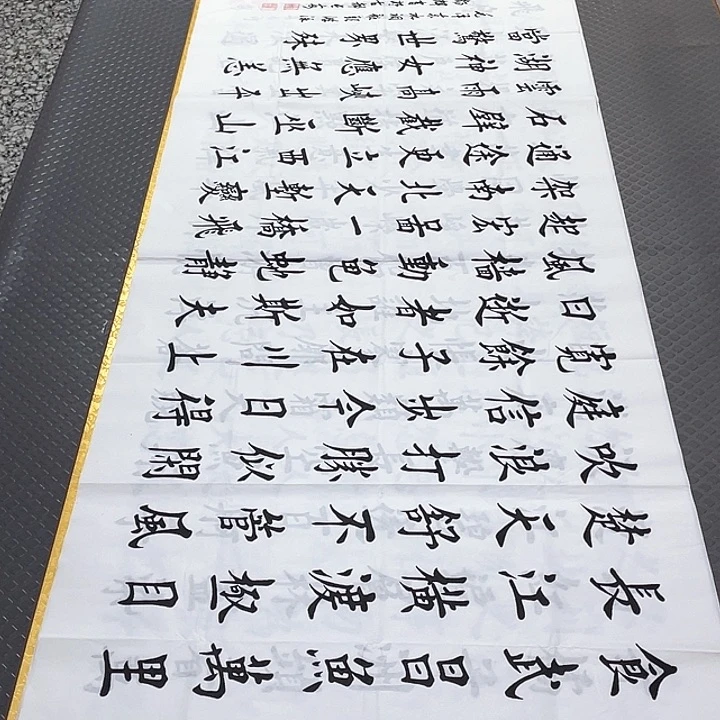 食武昌魚萬里
長江橫渡極目
楚天舒不管風
吹浪打勝似閒
庭信步今日得
寬餘子在川上
曰逝者如斯夫
風檣動龜蛇靜
起宏圖一橋飛
架南北天塹變
通途更立西江
石壁截斷巫山
雲雨高峽出平
湖神女應無恙
當驚世界殊
毛澤東水調歌頭游泳